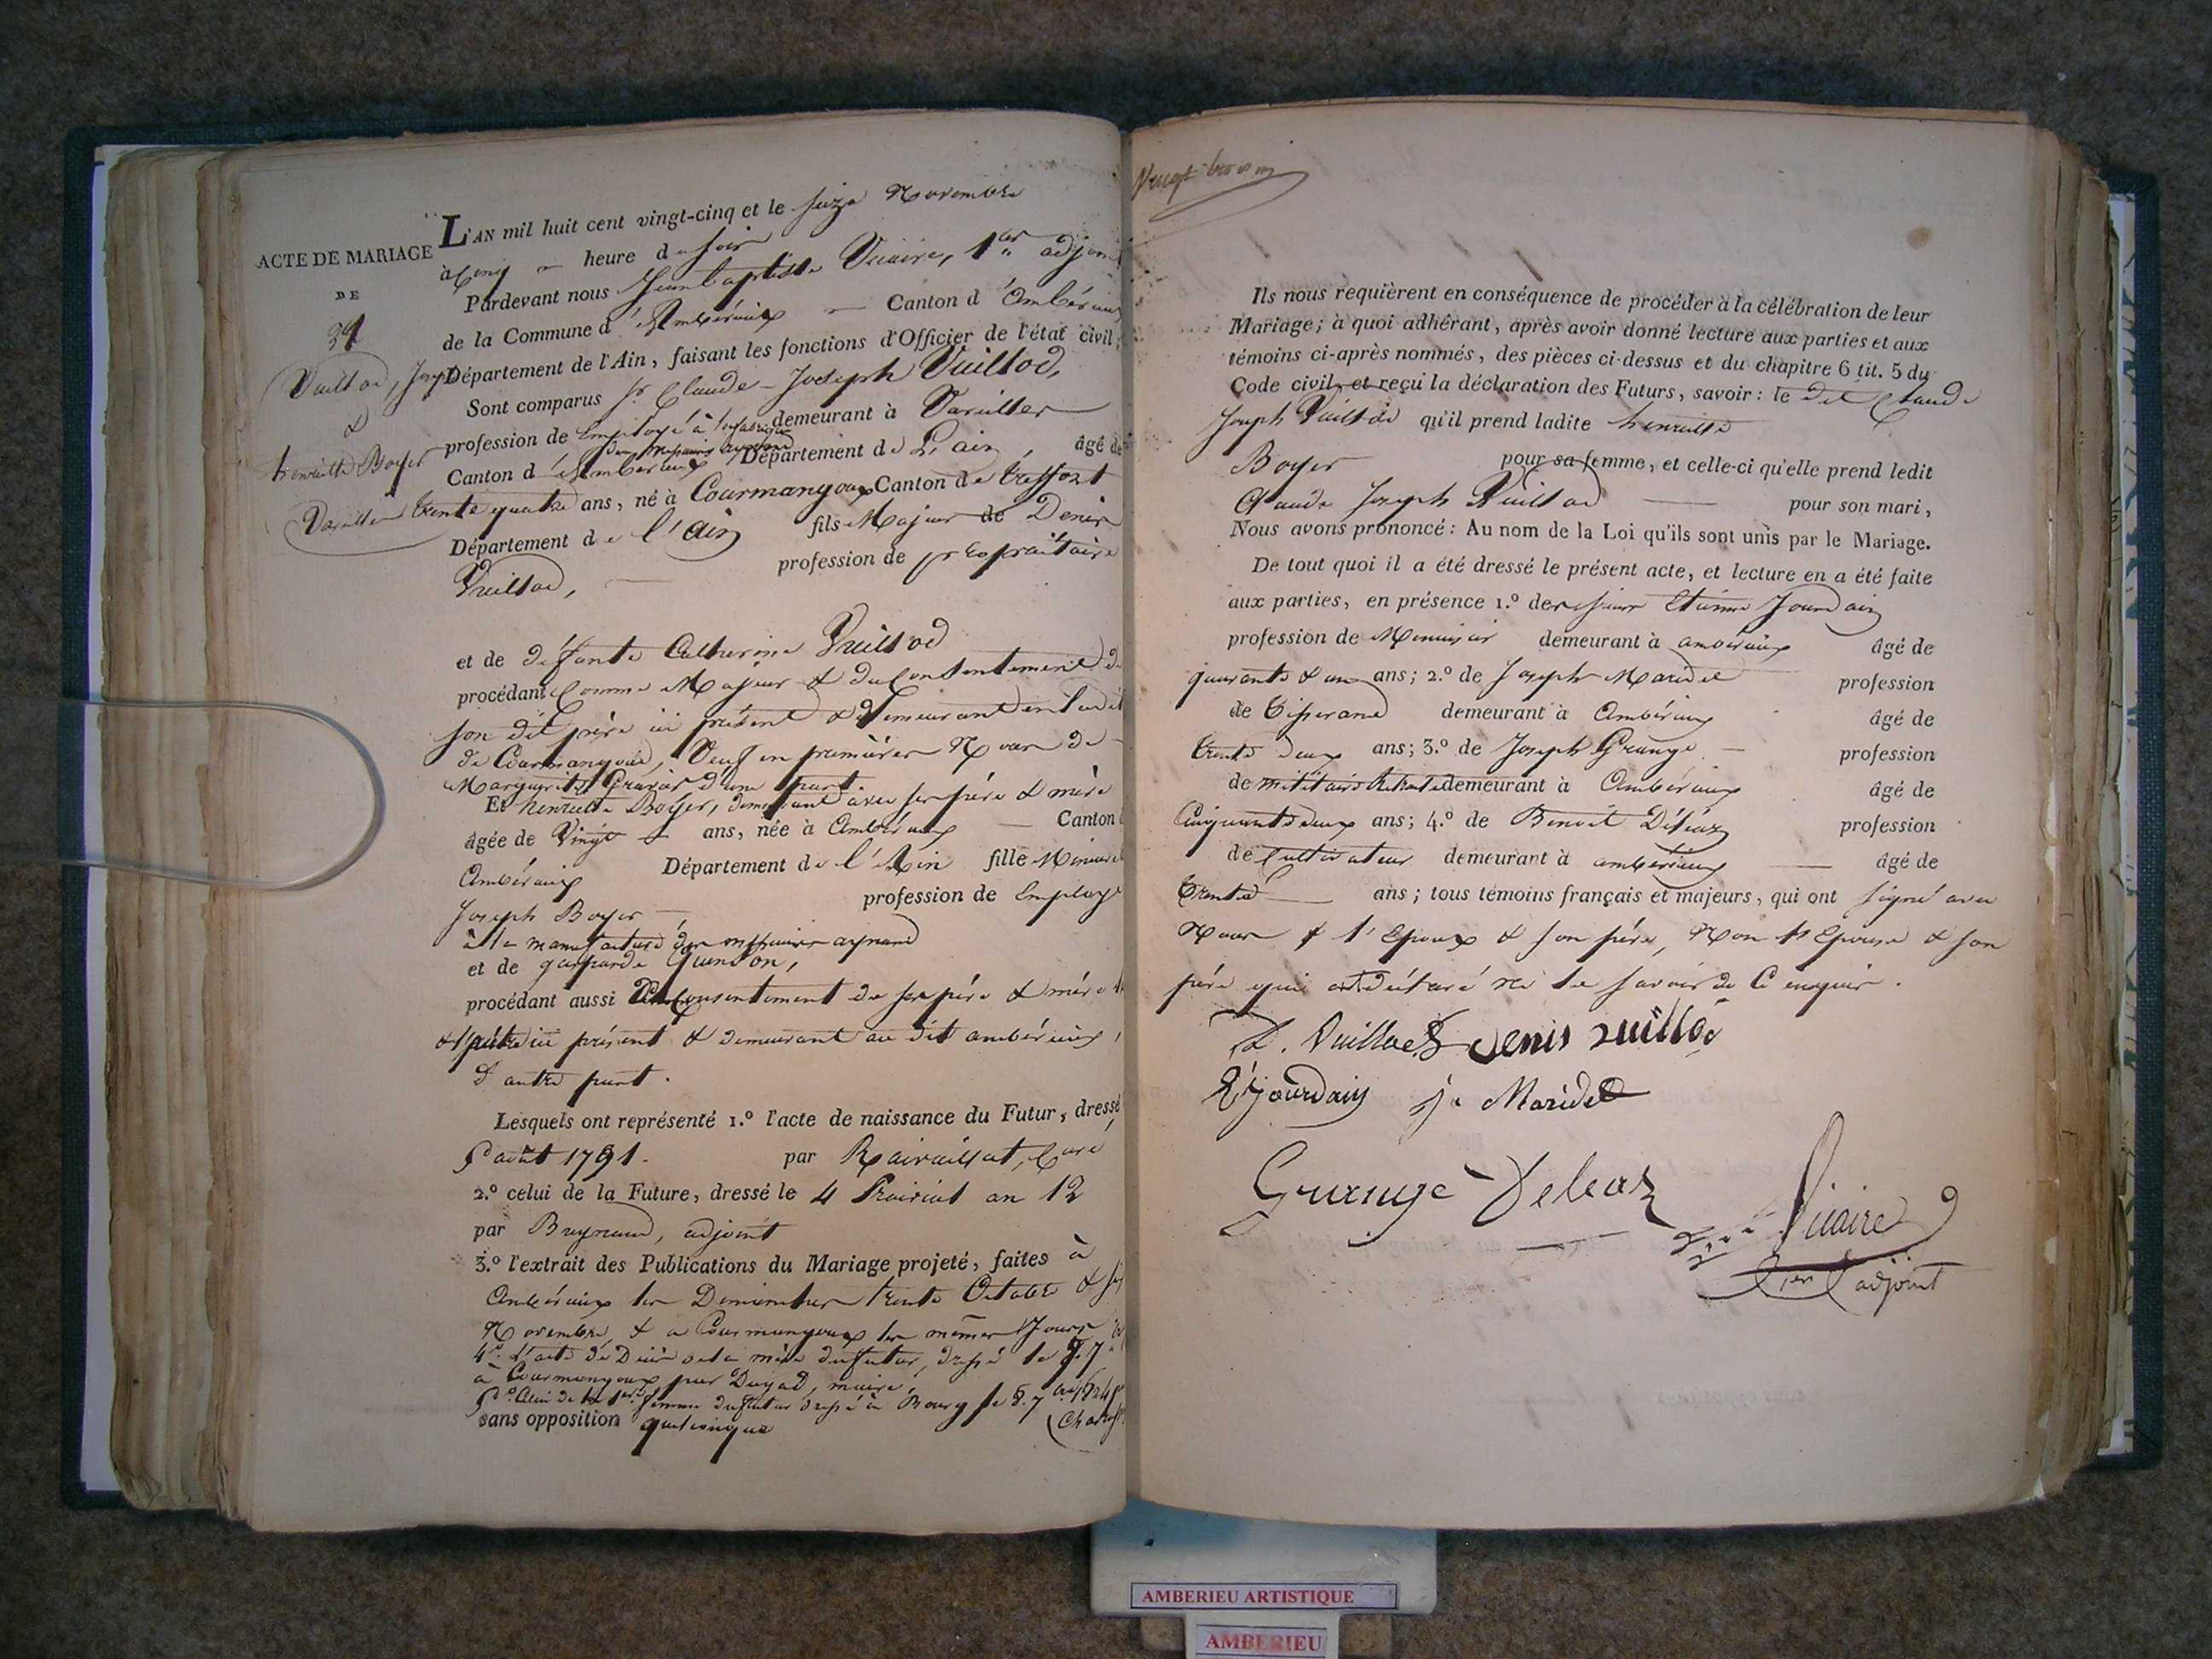 ACTE DE MARIAGE
DE
Vuillod, Joseph
&
henriette Boyer
Vareilles
L'AN mil huit cent vingt-cinq et le seize Novembre
à Cinq heure du soir
Pardevant nous Jean baptiste Vicaire, 1er adjoint
de la Commune d'Ambérieux Canton d'Ambérieux
Département de l'Ain, faisant les fonctions d'Officier de l'état civil;
Sont comparus Sr Claude-Joseph Vuillod,
profession de Employé à la fabrique demeurant à Vareilles
des messieurs aynard
Canton d'Ambérieux Département de L'ain âgé de
trente quatre ans, né à Courmangoux Canton de treffort
Département de l'Ain fils Majeur de Denis
Vuillod, profession de propriétaire
et de défunte Catherine Vuillod
procédant Comme Majeur & du Consentement de
son dit père ici présent & demeurant
de Courmangoux, Veuf en premières Noces de
Marguerite d'une part.
Et henriette Boyer, demeurant avec ses père & mère
âgée de Vingt ans, née à Ambérieux Canton d
Ambérieux Département de l'Ain fille Mineure
Joseph Boyer profession de Employé
à la manufacture des messieurs aynard
et de
procédant aussi du Consentement de ses père & mère
ici présent & demeurant au dit ambérieux,
d'autre part.
Lesquels ont représenté 1.º l'acte de naissance du Futur, dressé
5 août 1791. par Curé
2.º celui de la Future, dressé le 4 Prairial an 12
par adjoint
3.º l'extrait des Publications du Mariage projeté, faites à
Ambérieux les Dimanches trente Octobre & six
Novembre, & a Courmangoux les mêmes Jours
4º. l'acte de Décès de la mère du futur, dressé le
a Courmangoux par maire,
5º. Celui de la 1ère femme du futur dressé à Bourg le
sans opposition quelconque
Vingt-trois
Ils nous requièrent en conséquence de procéder à la célébration de leur
Mariage; à quoi adhérant, après avoir donné lecture aux parties et aux
témoins ci-après nommés, des pièces ci-dessus et du chapitre 6 tit. 5 du
Code civil, et reçu la déclaration des Futurs, savoir: le dit Claude
Joseph Vuillod qu'il prend ladite henriette
Boyer pour sa femme, et celle-ci qu'elle prend ledit
Claude Joseph Vuillod pour son mari,
Nous avons prononcé: Au nom de la Loi qu'ils sont unis par le Mariage.
De tout quoi il a été dressé le présent acte, et lecture en a été faite
aux parties, en présence 1.º de sieur Etienne Jourdain
profession de Menuisier demeurant à ambérieux âgé de
quarante & un ans; 2.º de Joseph Maridet profession
de Tisserand demeurant à Ambérieux âgé de
trente deux ans; 3.º de Joseph Grange profession
de militaire retraité demeurant à Ambérieux âgé de
Cinquante deux ans; 4.º de Benoit Déléaz profession
de Cultivateur demeurant à ambérieux âgé de
trente ans; tous témoins français et majeurs, qui ont signé avec
Nous & l'Epoux & son père, Non l'Epouse & son
père qui ont déclaré ne le savoir de Ce enquis.
Vuillod Denis vuillod
Et Jourdain Jh Maridet
Grange Deleaz
Vicaire
1er adjoint
AMBERIEU ARTISTIQUE
AMBERIEU